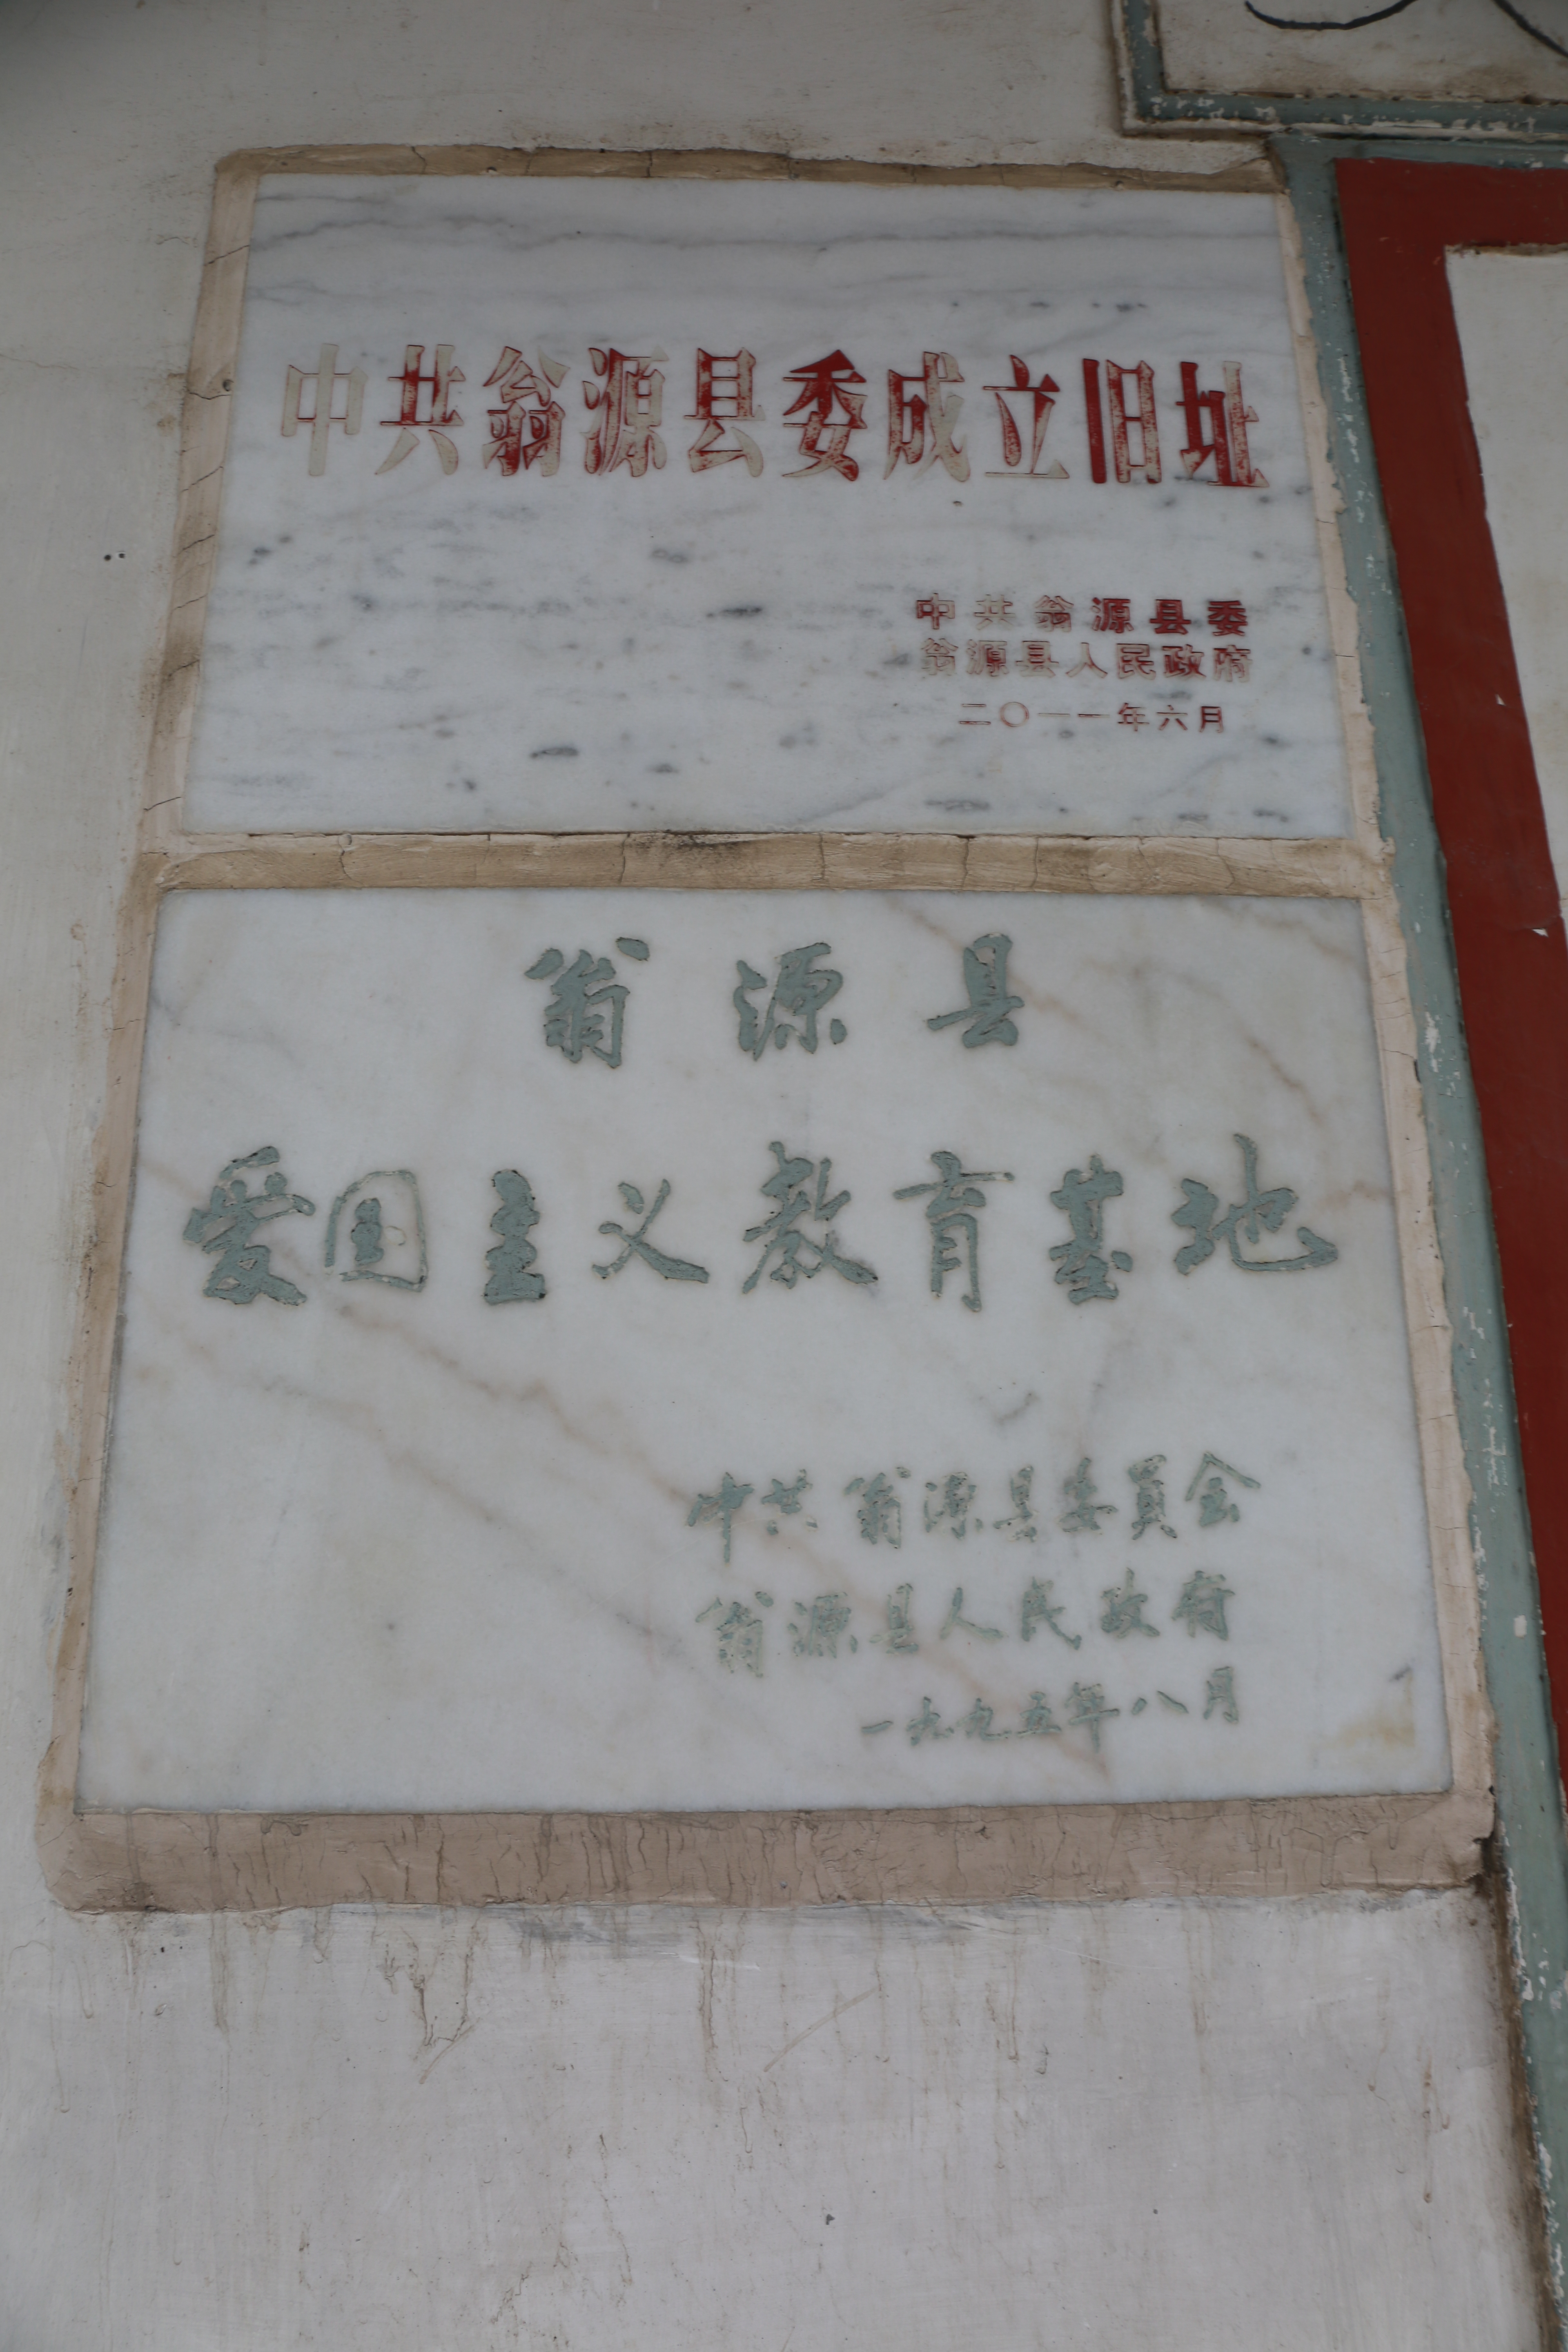 中共翁源县委成立旧址
中共翁源县委
翁源县人民政府
二〇一一年六月
翁源县
爱国主义教育基地
中共翁源县委員会
翁源县人民政府
一九九五年八月